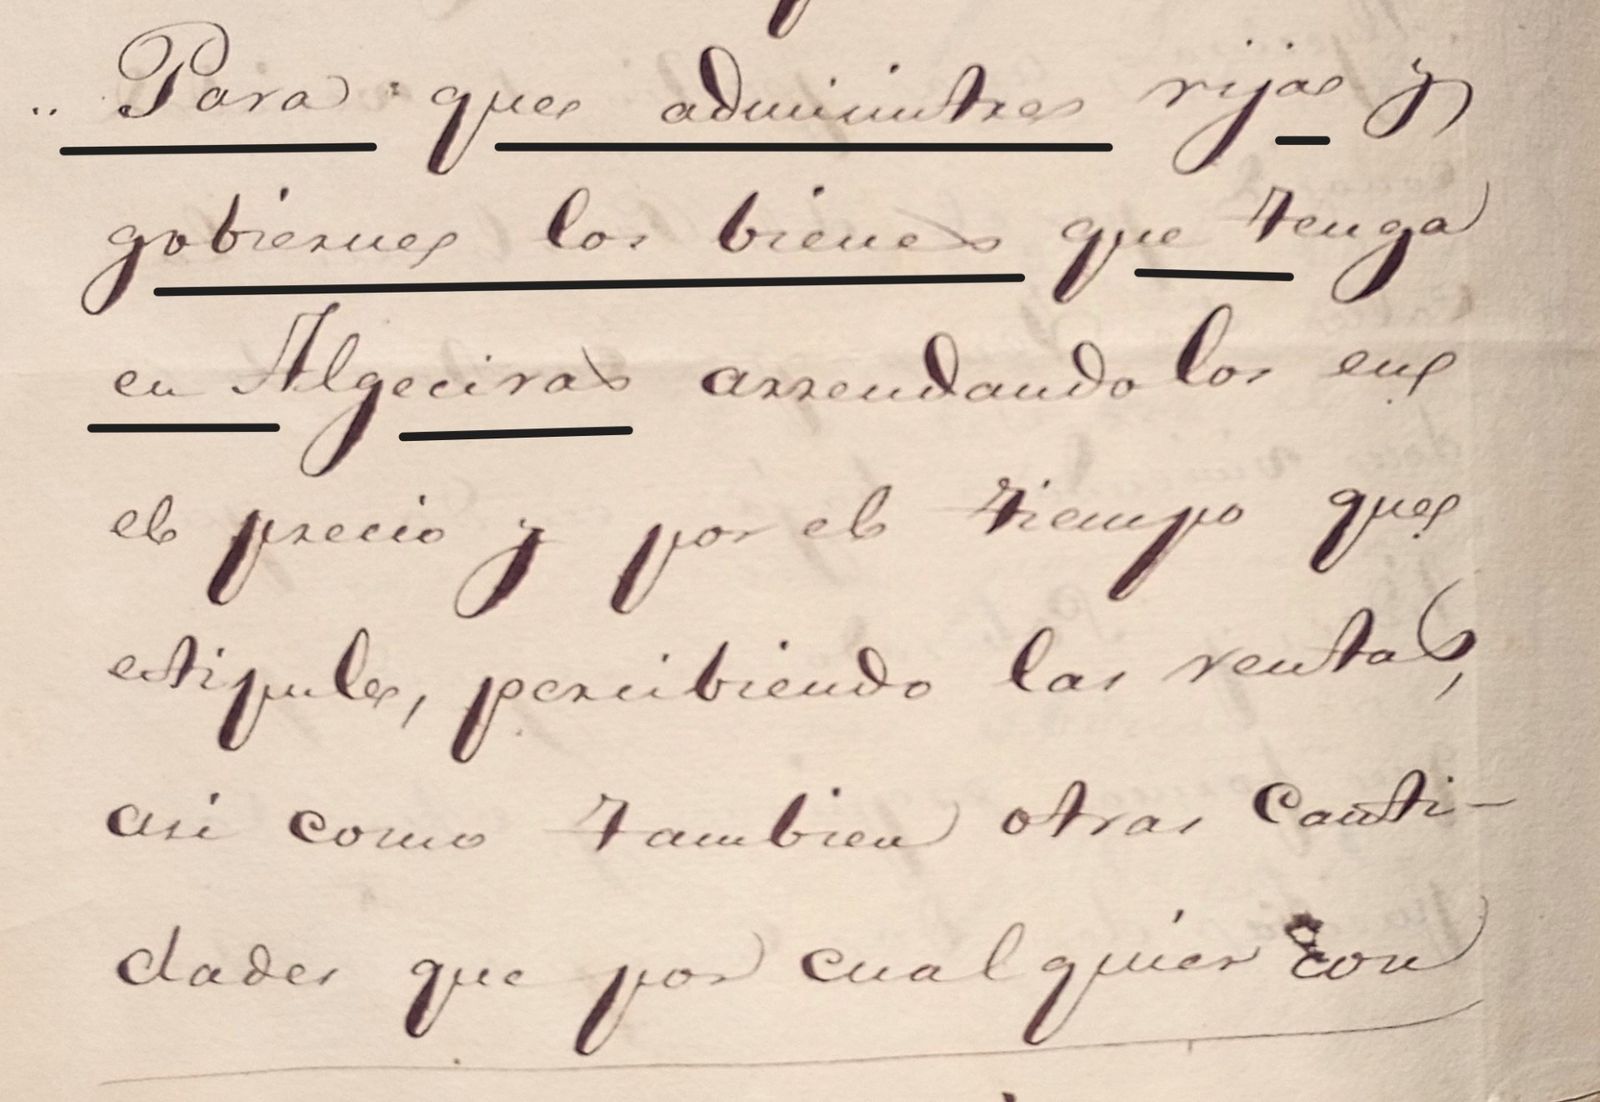 Para que administre rija y
gobierne los bienes que tenga
en Algeciras arrendandolos en
el precio y por el tiempo que
estipule, percibiendo las rentas,
asi como tambien otras Canti-
dades que por cualquier con